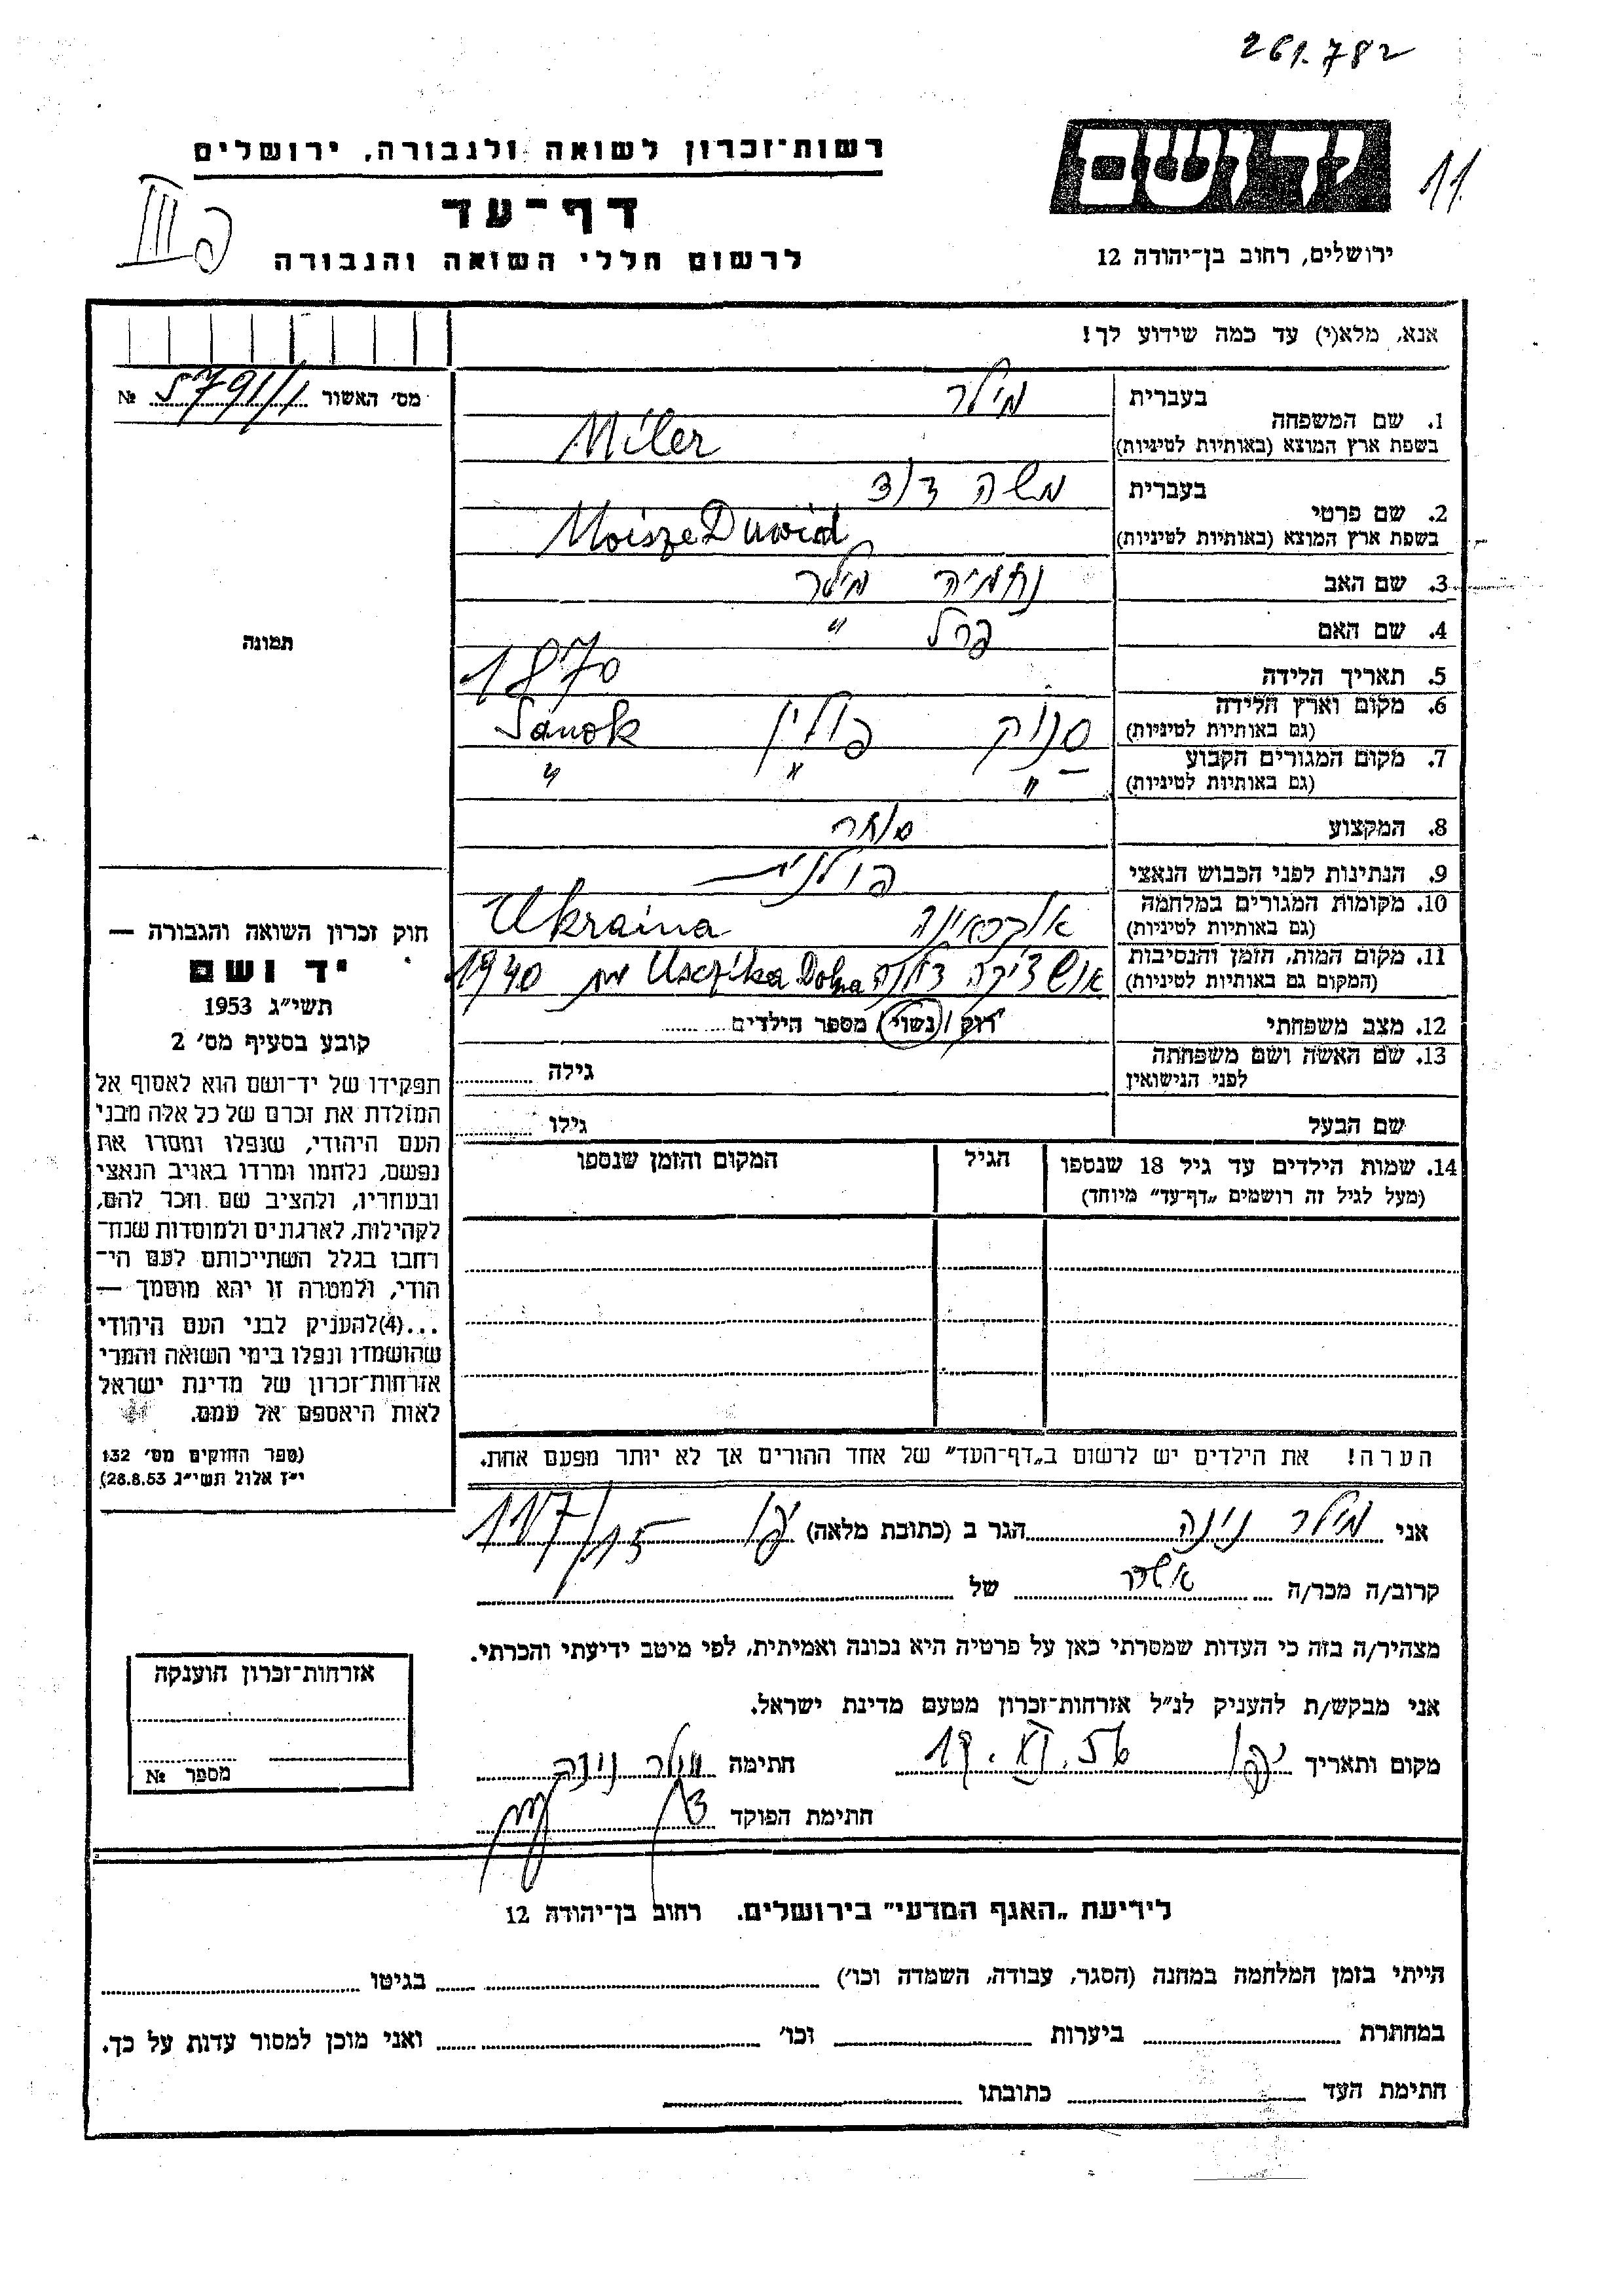 261.782
רשות־זכרון לשואה ולגבורה, ירושלים
יד ושם
11
דף־עד
לרשום חללי השואה והגבורה
ירושלים, רחוב בן־יהודה 12
אנא, מלא(י) עד כמה שידוע לך!
מס' האשור 5791/1 №
1. שם המשפחה בעברית מילר
בשפת ארץ המוצא (באותיות לטיניות) Miler
2. שם פרטי בעברית משה דוד
בשפת ארץ המוצא (באותיות לטיניות) Moisze Duwid
3. שם האב נחמיה מילר
4. שם האם פרל "
5. תאריך הלידה 1870
6. מקום וארץ הלידה (גם באותיות לטיניות) סנוק פולין Sanok
7. מקום המגורים הקבוע (גם באותיות לטיניות) " " "
8. המקצוע סוחר
9. הנתינות לפני הכבוש הנאצי פולנית
10. מקומות המגורים במלחמה (גם באותיות לטיניות) אוקראינה Ukraina
11. מקום המות, הזמן והנסיבות (המקום גם באותיות לטיניות) דולנה Dolna מת 1940
12. מצב משפחתי רווק / נשוי / מספר הילדים
13. שם האשה ושם משפחתה לפני הנישואין גילה
שם הבעל גילו
14. שמות הילדים עד גיל 18 שנספו הגיל המקום והזמן שנספו
(מעל לגיל זה רושמים „דף־עד" מיוחד)
הערה! את הילדים יש לרשום ב„דף־העד" של אחד ההורים אך לא יותר מפעם אחת.
תמונה
חוק זכרון השואה והגבורה —
יד ושם
תשי"ג 1953
קובע בסעיף מס' 2
תפקידו של יד־ושם הוא לאסוף אל
המולדת את זכרם של כל אלה מבני
העם היהודי, שנפלו ומסרו את
נפשם, נלחמו ומרדו באויב הנאצי
ובעוזריו, ולהציב שם וזכר להם,
לקהילות, לארגונים ולמוסדות שנח־
רחבו בגלל השתייכותם לעם הי־
הודי, ולמטרה זו יהא מוסמך —
...(4)להעניק לבני העם היהודי
שהושמדו ונפלו בימי השואה והמרי
אזרחות־זכרון של מדינת ישראל
לאות היאספם אל עמם.
(ספר החוקים מס' 132
י"ז אלול תשי"ג 28.8.53)
אני מילר נינה הגר ב (כתובת מלאה) יפו 117/15
קרוב/ה מכר/ה של
מצהיר/ה בזה כי העדות שמסרתי כאן על פרטיה היא נכונה ואמיתית, לפי מיטב ידיעתי והכרתי.
אני מבקש/ת להעניק לנ"ל אזרחות־זכרון מטעם מדינת ישראל.
מקום ותאריך יפו 19.XI.56 חתימה מילר נינה
חתימת הפוקד
אזרחות־זכרון הוענקה
מספר №
לידיעת „האגף המדעי" בירושלים. רחוב בן־יהודה 12
הייתי בזמן המלחמה במחנה (הסגר, עבודה, השמדה וכו') בגיטו
במחתרת ביערות וכו' ואני מוכן למסור עדות על כך.
חתימת העד כתובתו